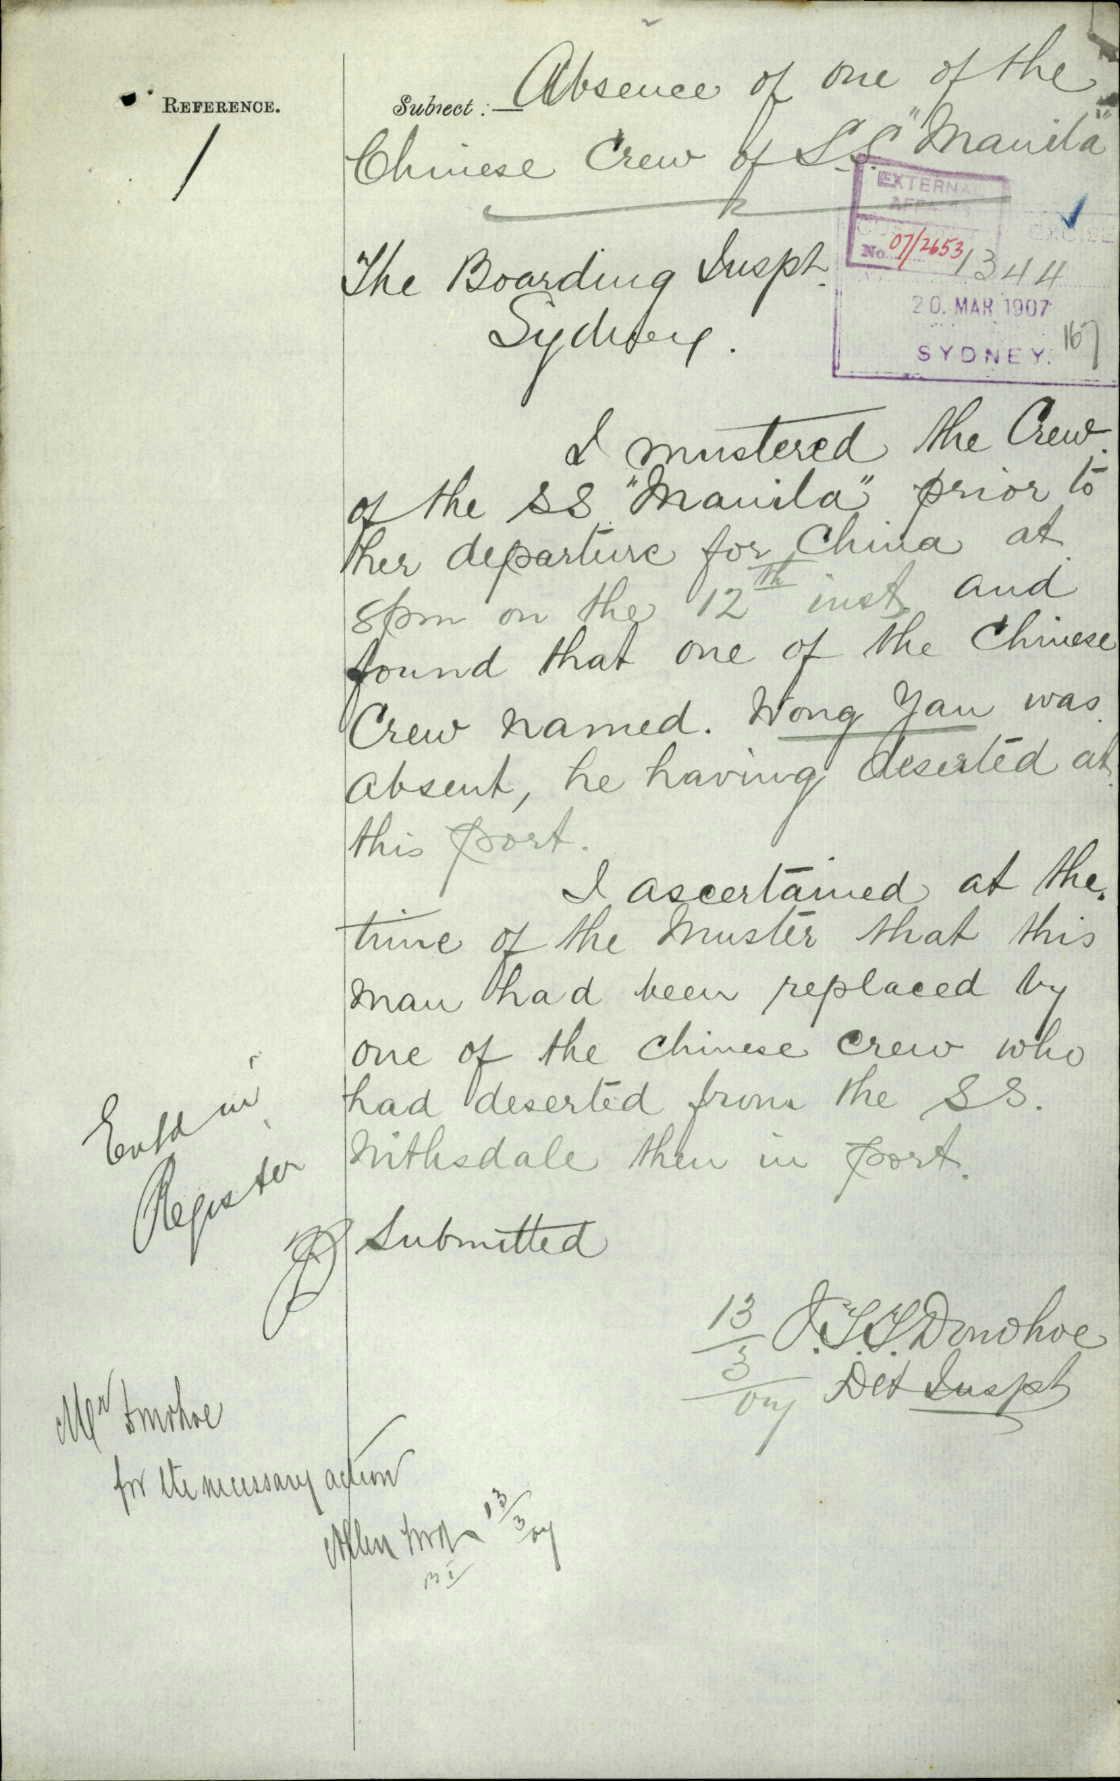 REFERENCE.
1
Subject :— Absence of one of the
Chinese Crew of S.S. "Manila"
EXTERNAL
AFFAIRS
No. 07/2653
1344
20. MAR 1907
167
SYDNEY.
The Boarding Inspt.
Sydney.
I mustered the Crew
of the SS "Manila" prior to
her departure for China at
8pm on the 12th inst and
found that one of the Chinese
Crew named. Wong Yau was
absent, he having deserted at
this port.
I ascertained at the
time of the muster that this
man had been replaced by
one of the Chinese crew who
had deserted from the SS.
Nithsdale then in port.
Submitted
13/3/07 J.T.T. Donohoe
Det Inspt
Entd in
Register
Mr Donohoe
for the necessary action
13/3/07
BI